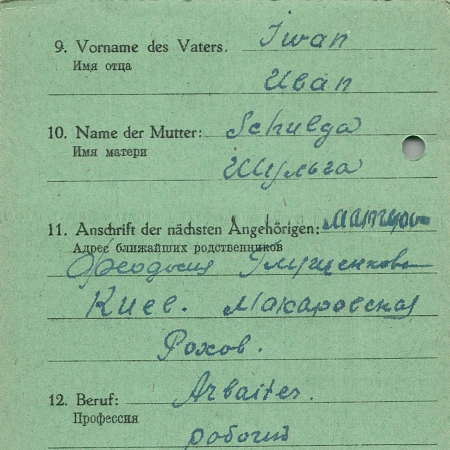 9. Vorname des Vaters. Iwan
Имя отца
Иван
10. Name der Mutter: Schulga
Имя матери
Шульга
11. Anschrift der nächsten Angehörigen:
Адрес ближайших родственников
Феодосия
Киев. Макаровская
Рахов.
12. Beruf: Arbaiter.
Профессия
рабочий